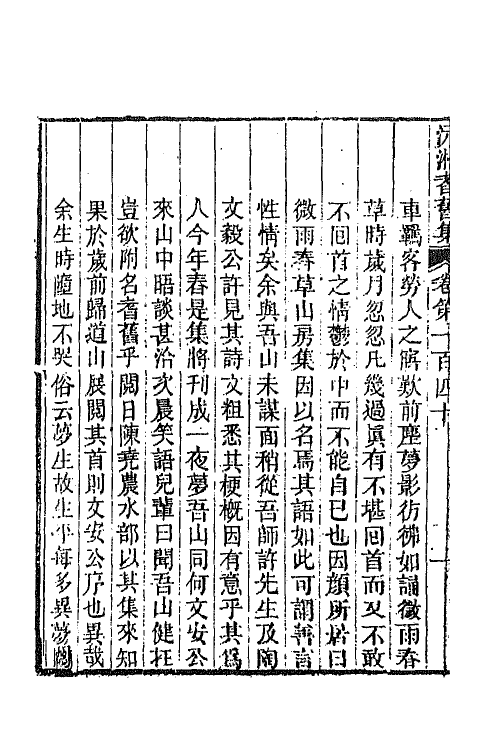 沅湘耆舊集 卷第一百四十 一
車羈客勞人之寤歎前塵夢影彷彿如誦微雨春
草時歲月忽忽凡幾過眞有不堪回首而又不敢
不回首之情鬱於中而不能自已也因顏所居曰
微雨春草山房集因以名焉其語如此可謂善言
性情矣余與吾山未謀面稍從吾師許先生及陶
文毅公許見其詩文粗悉其梗概因有意乎其爲
人今年春是集將刊成一夜夢吾山同何文安公
來山中晤談甚洽次晨笑語兒輩曰聞吾山健在
豈欲附名耆舊乎閱日陳堯農水部以其集來知
果於歲前歸道山展閱其首則文安公序也異哉
余生時墮地不哭俗云夢生故生平每多異夢陶